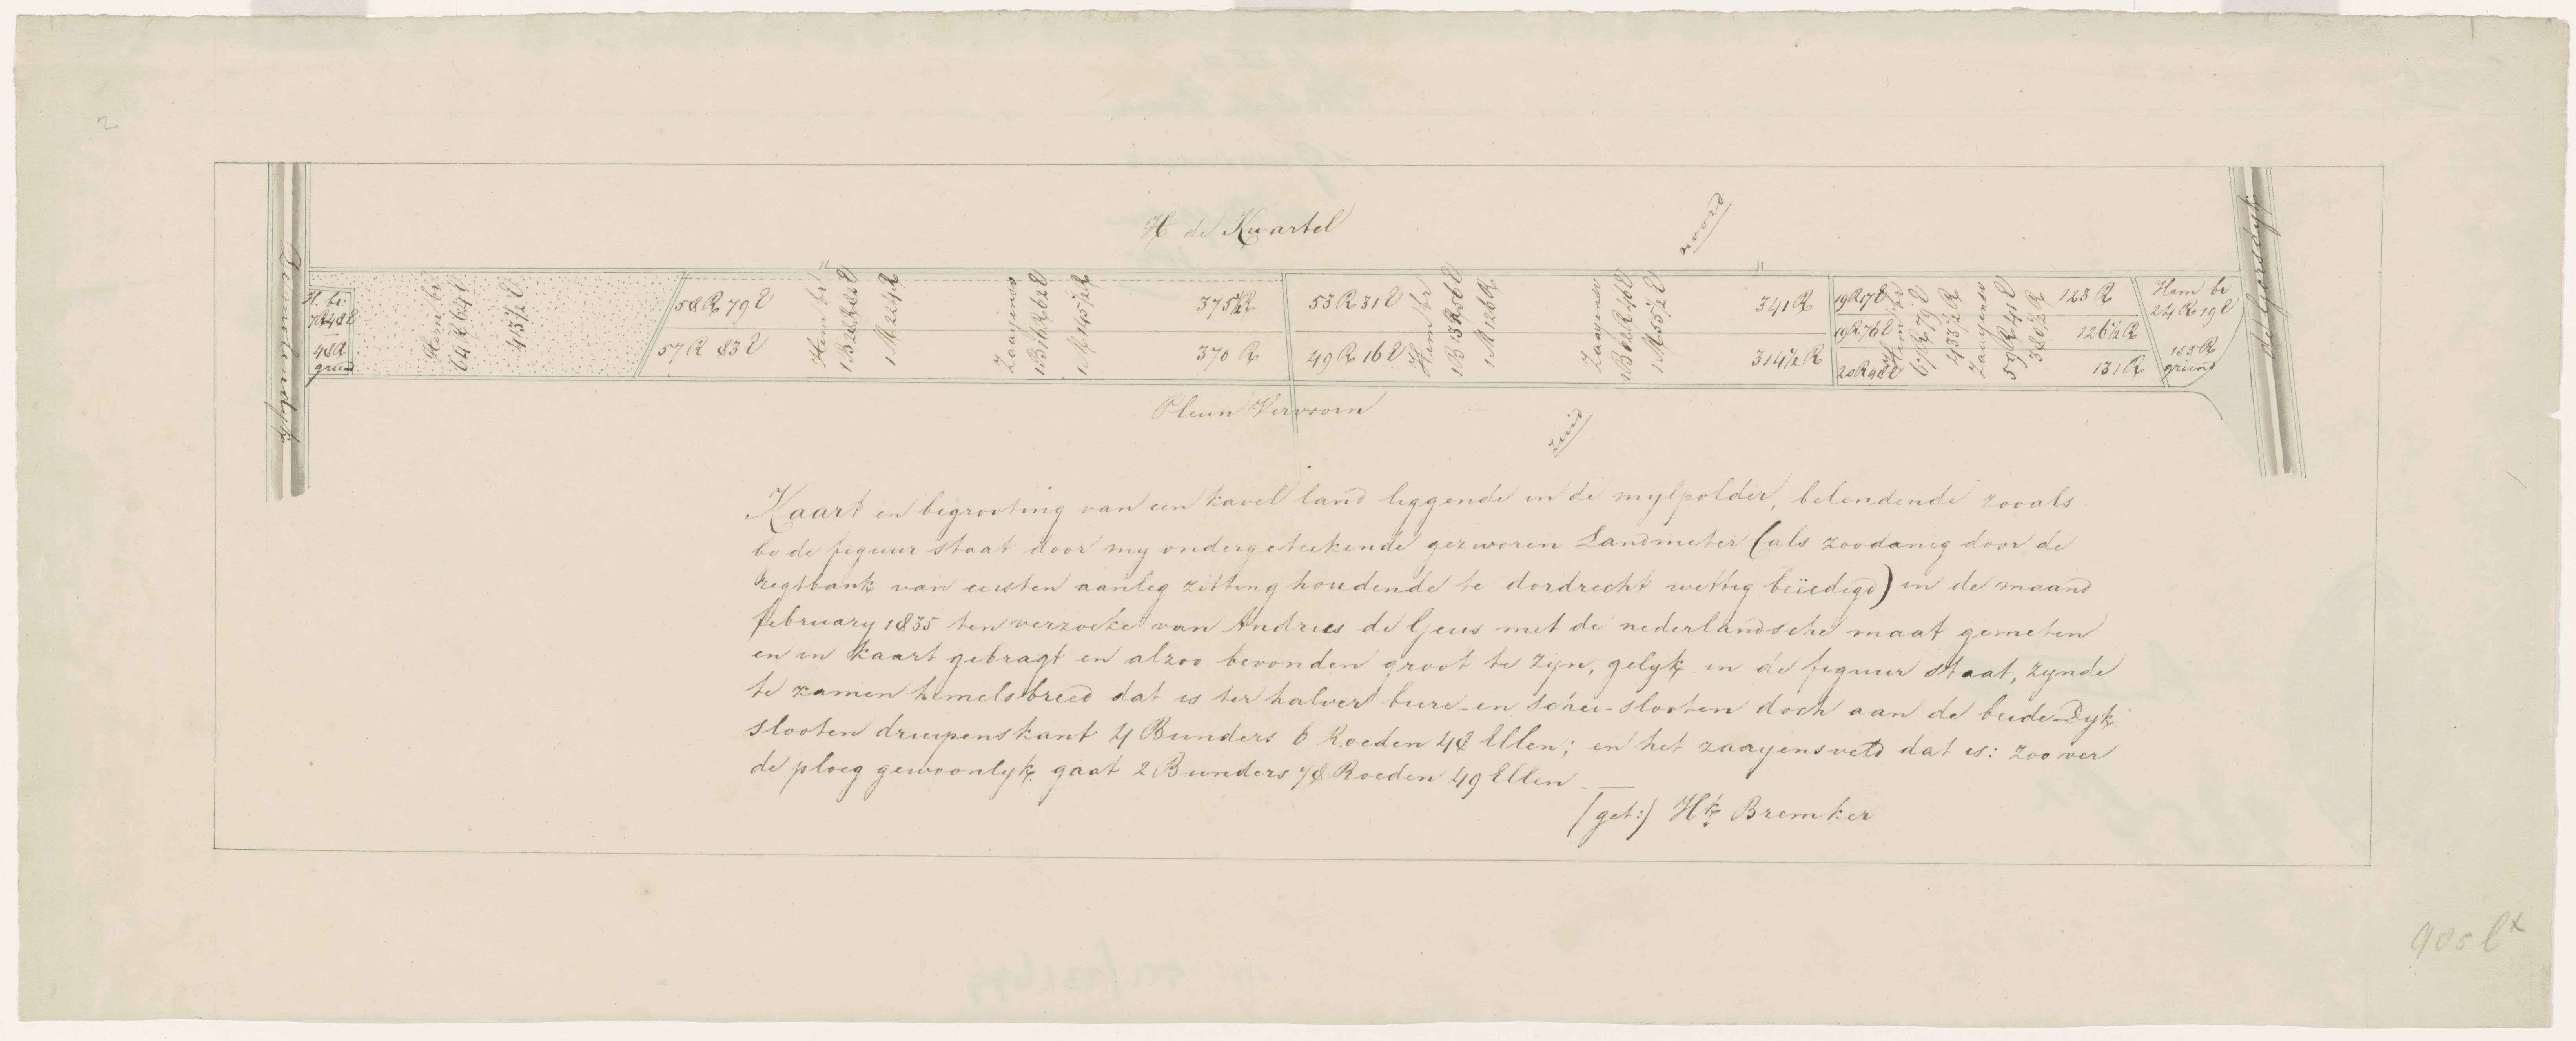 2
H de Kwartel
noord
H. br:
7R48E
48R
grund
Hem br
64R64E
58R 79E
57R 83E
Hem br
1B28R82E
1M224R
Zaayens
1B16R62E
1M145½R
375½R
370 R
53R 31E
49R 16E
Hem br
1B53R56E
1M126R
Zaayens
341R
314½R
19R17E
19R76E
20R48E
Hem br
67R79E
433½R
Zaayens
59R41E
380½R
123 R
126½R
131R
Hem br
24R 19E
155R
grund
de Gorsdyk
Pleun Vervoorn
zuid
Kaart en begrooting van een kavel land liggende in de mylpolder, belendende zooals
bo de figuur staat door my ondergeteekende gezworen Landmeter (als zoodanig door de
Regtbank van eersten aanleg zitting houdende te dordrecht wettig beiëdigd) in de maand
february 1835 ten verzoeke van Andries de Geus met de nederlandsche maat gemeten
en in kaart gebragt en alzoo bevonden groot te zyn, gelyk in de figuur staat, zynde
te zamen hemelsbreed dat is ter halver bure-en scheislooten doch aan de beide Dyk
slooten druipenskant 4 Bunders 6 Roeden 48 Ellen; en het zaayensveld dat is: zoo ver
de ploeg gewoonlyk gaat 2 Bunders 78 Roeden 49 Ellen
(get:) Hk Bremker
985 lx